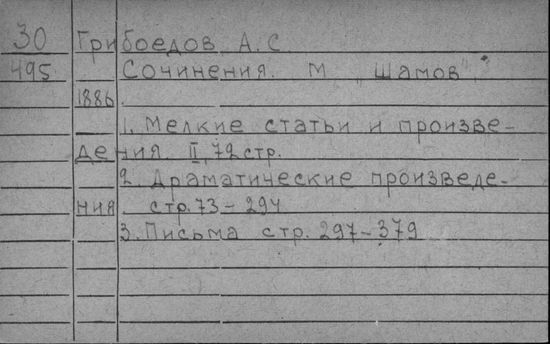 30 Грибоедов А. С
495 Сочинения. М „Шамов".
1886.
1. Мелкие статьи и произве-
дения. II, 72 стр.
2. Драматические произведе-
ния. стр. 73 - 294
3. Письма стр. 297 - 379